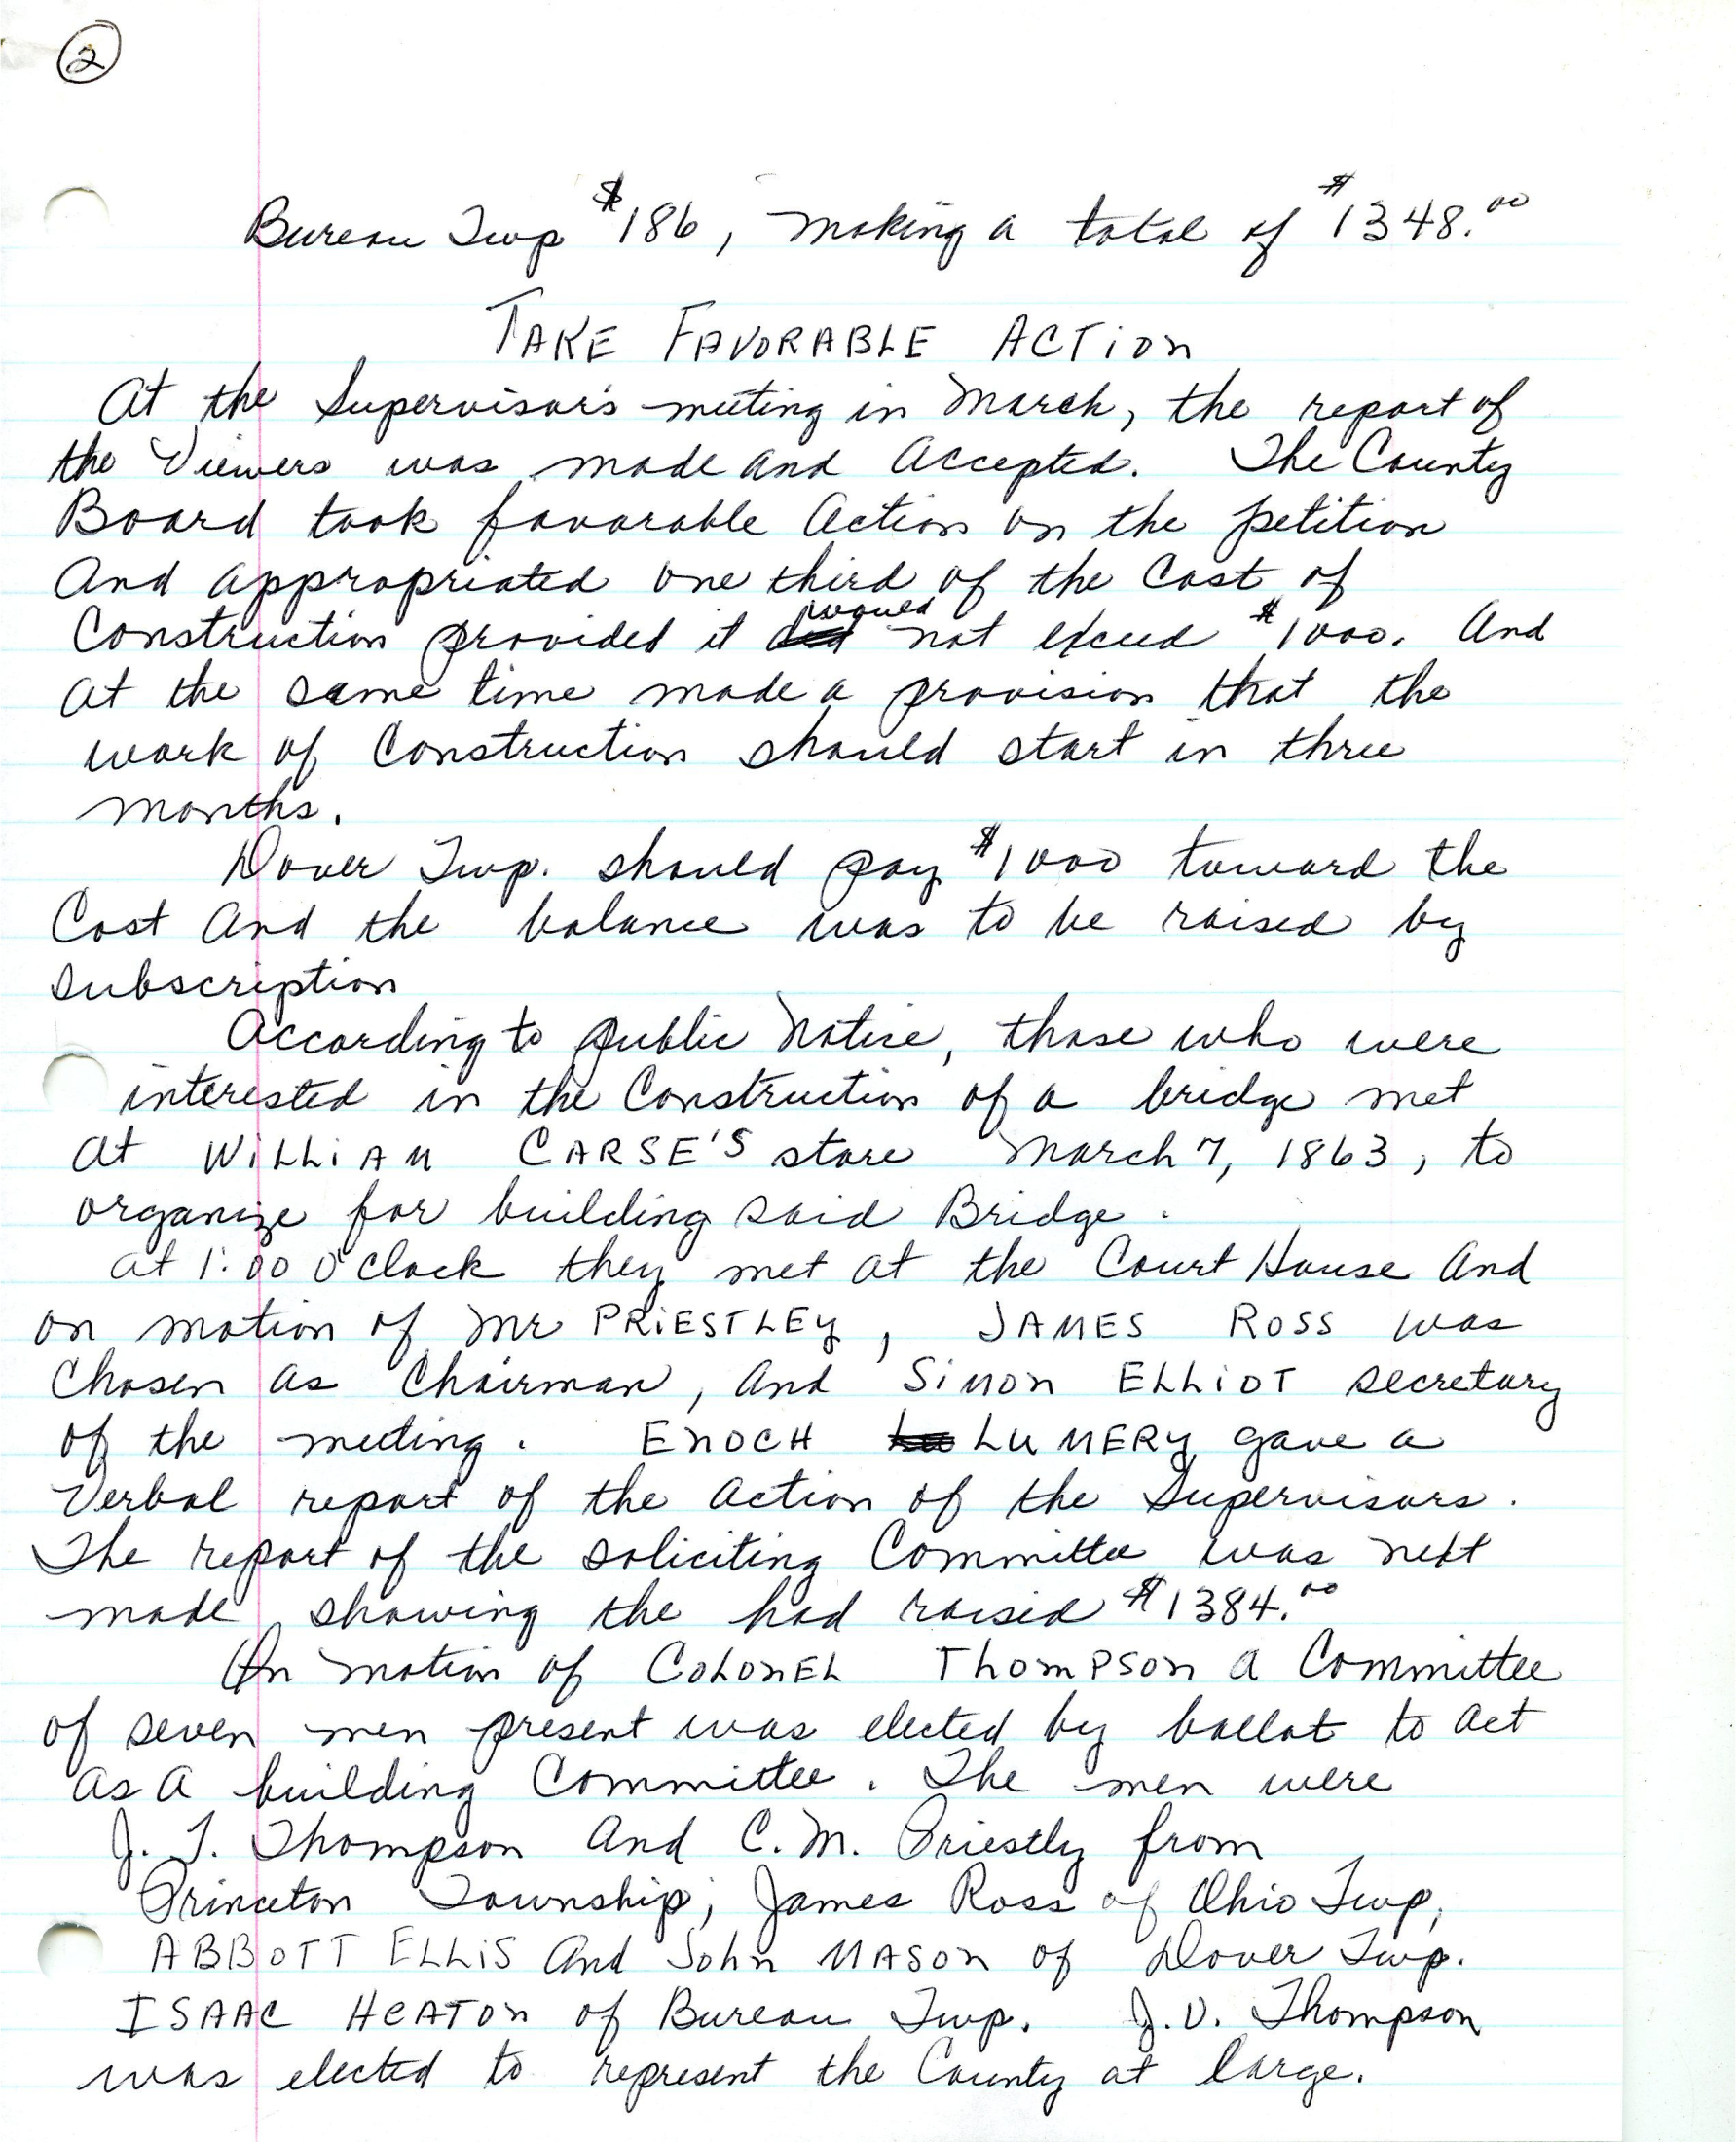 2
Bureau Twp $186, making a total of $1348.00
TAKE FAVORABLE ACTION
At the Supervisor's meeting in March, the report of
the Viewers was made and Accepted. The County
Board took favorable Action on the petition
And appropriated one third of the Cost of
Construction provided it would not exceed $1000. And
at the same time made a provision that the
work of Construction should start in three
months.
Dover Twp. should pay $1000 toward the
Cost And the balance was to be raised by
subscription
According to public Notice, those who were
interested in the Construction of a bridge met
at WILLIAM CARSE'S store March 7, 1863, to
organize for building said Bridge.
at 1:00 O'clock they met at the Court House And
on motion of Mr PRIESTLEY, JAMES ROSS was
Chosen as Chairman, And SIMON ELLIOT secretary
of the meeting. ENOCH LUMERY gave a
Verbal report of the Action of the Supervisors.
The report of the soliciting Committee was next
made, showing the had raised $1384.00
On motion of COLONEL THOMPSON a Committee
of seven men present was elected by ballot to act
as A building Committee. The men were
J. T. Thompson And C. M. Priestly from
Princeton Township; James Ross of Ohio Twp,
ABBOTT ELLIS And John MASON of Dover Twp.
ISAAC HEATON of Bureau Twp. J. V. Thompson
was elected to represent the County at large.